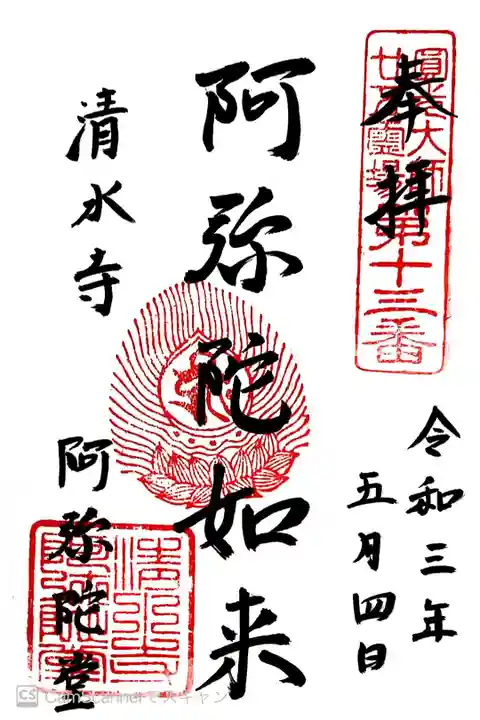 奉拝
圓光大師
廿五霊場
第十三番
令和三年
五月四日
阿弥陀如来
清水寺
阿弥陀堂
CS CamScannerでスキャン